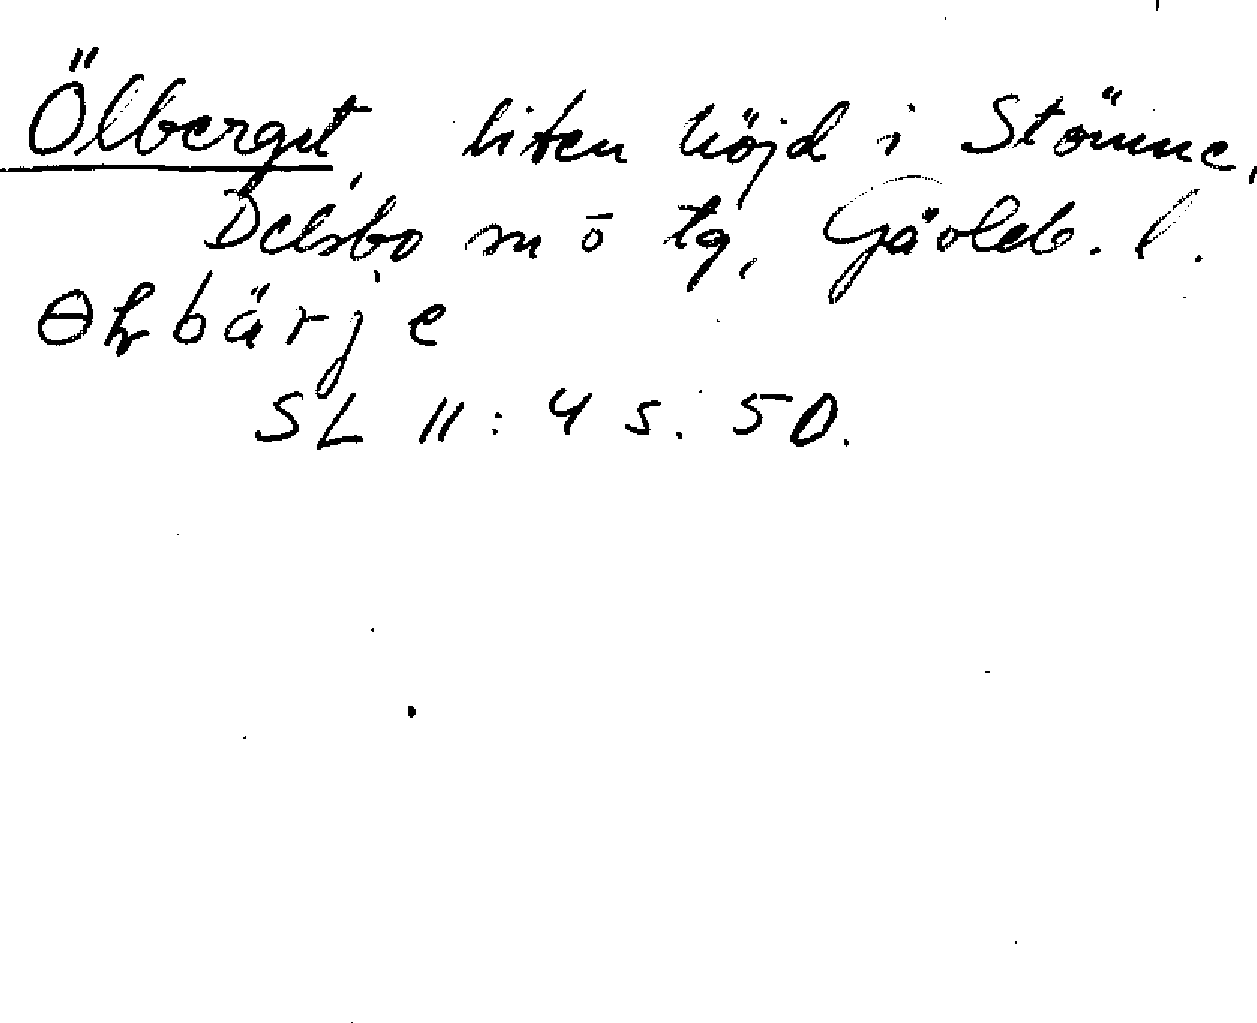 Ölberget, liten höjd i Stömne,
Delsbo sn o tg, Gävleb. l.
ɵɫbärje
SL II:4 s. 50.